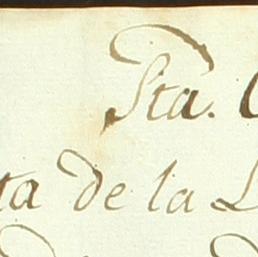 Sta.
ta de la